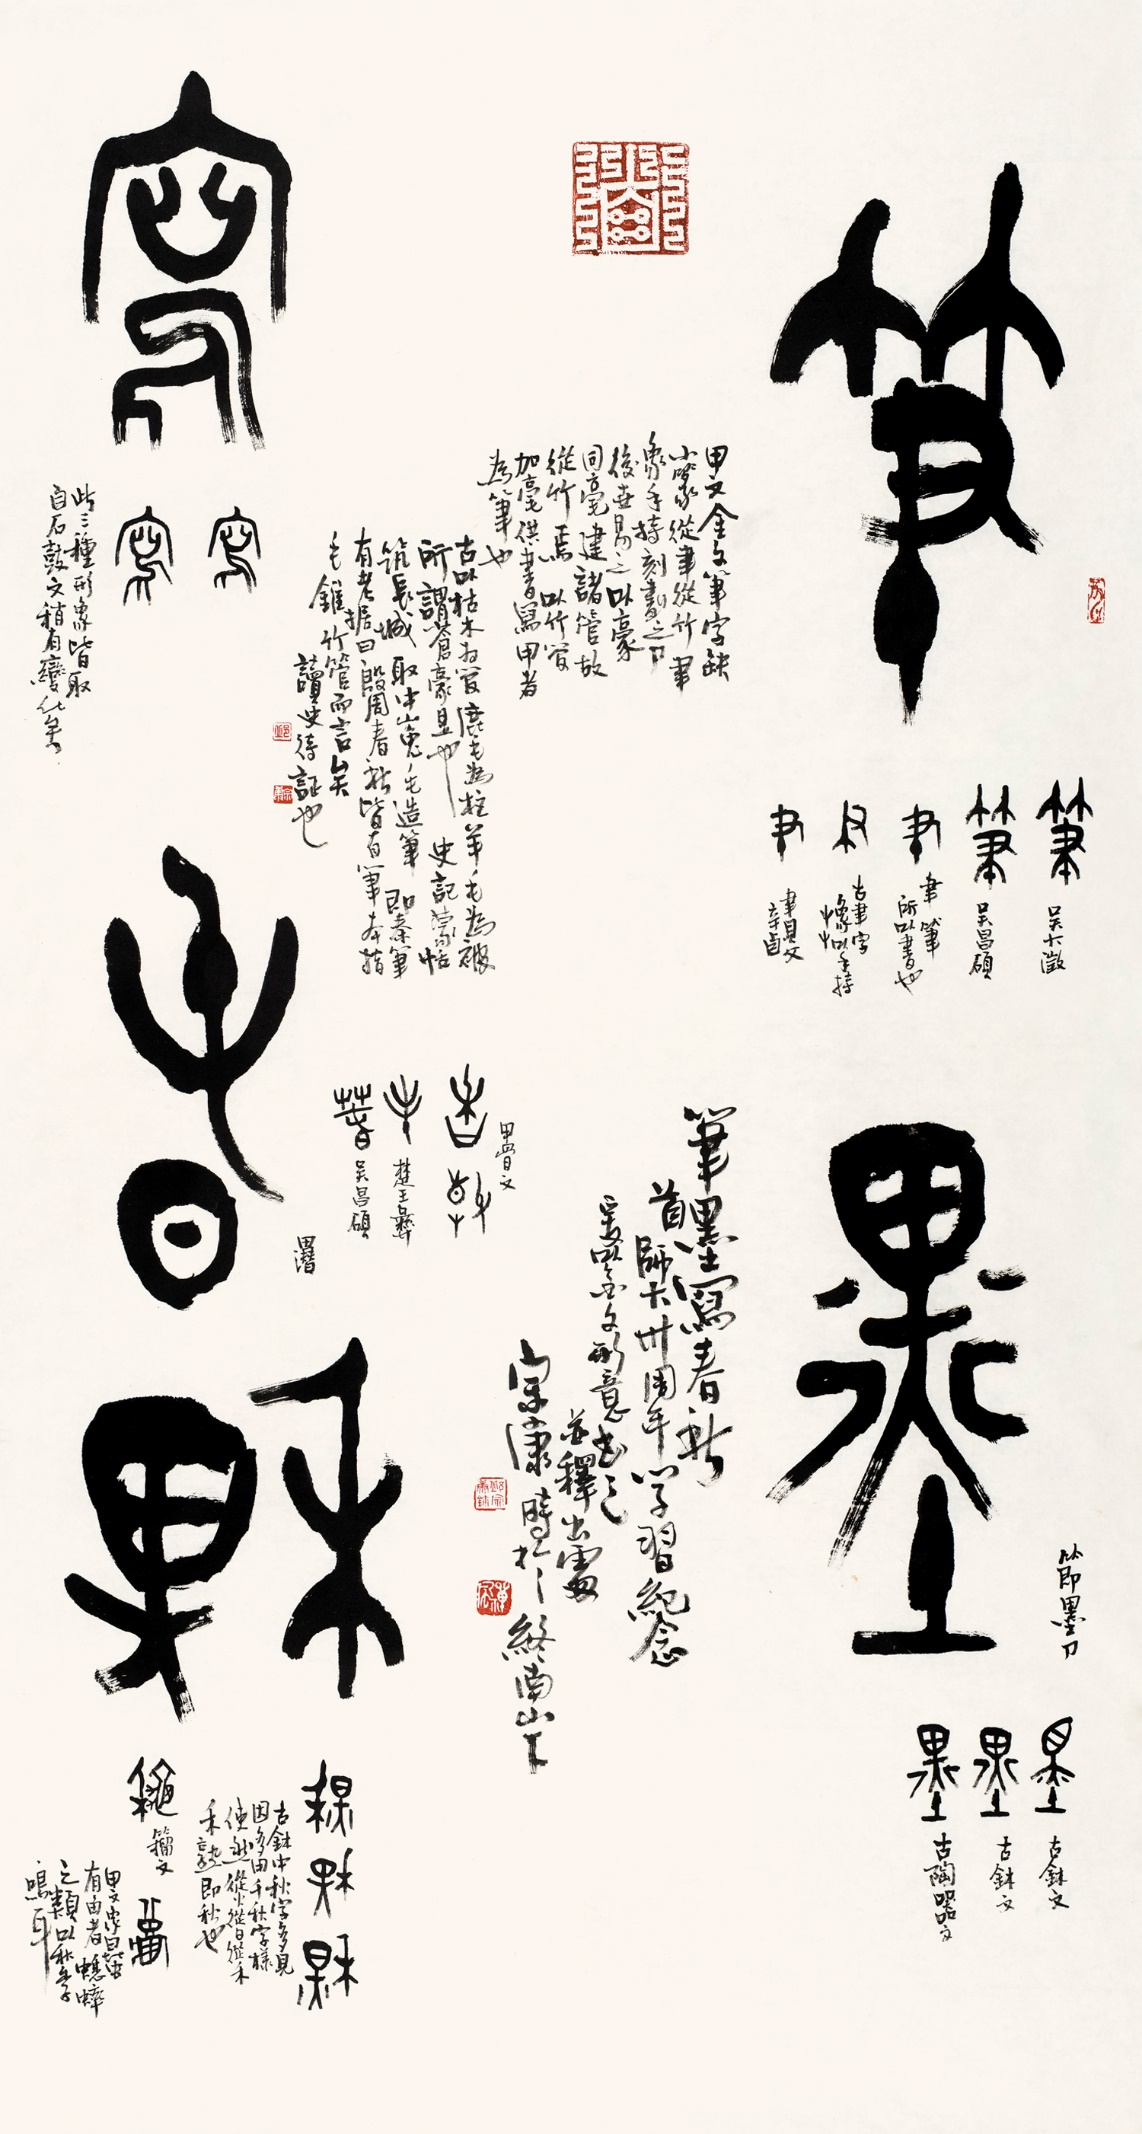 筆墨
寫春秋
吴大澂
吴昌碩
聿筆
所以書也
古聿字
像以手持
聿鼎文
辛卣
節墨刀
古鉢文
古鉢文
古陶器文
甲文金文筆字缺
小篆從聿從竹聿
象手持刻畫之刀
後世易之以豪
同毫建諸管故
從竹焉以竹管
加毫供書寫甲者
為筆也
古以枯木为管鹿毛為柱羊毛為被
所謂蒼豪是也 史記蒙恬
筑長城取中山兔毛造筆即秦筆
有老据曰殷周春秋皆有筆夲指
毛錐竹管而言矣
讀史待証也
甲骨文
楚王彝
吴昌碩
筆墨寫春秋
首師大卅周年学習紀念
爰以金文形意书之
並釋出處
宗康時於終南山下
此三種形象皆取
自石鼓文稍有變化矣
古鉢中秋字多見
因多用千秋字樣
使然從火從日從禾
禾熟即秋也
籀文
甲文象昆虫
有由者蟋蟀
之類以秋季
鳴耳